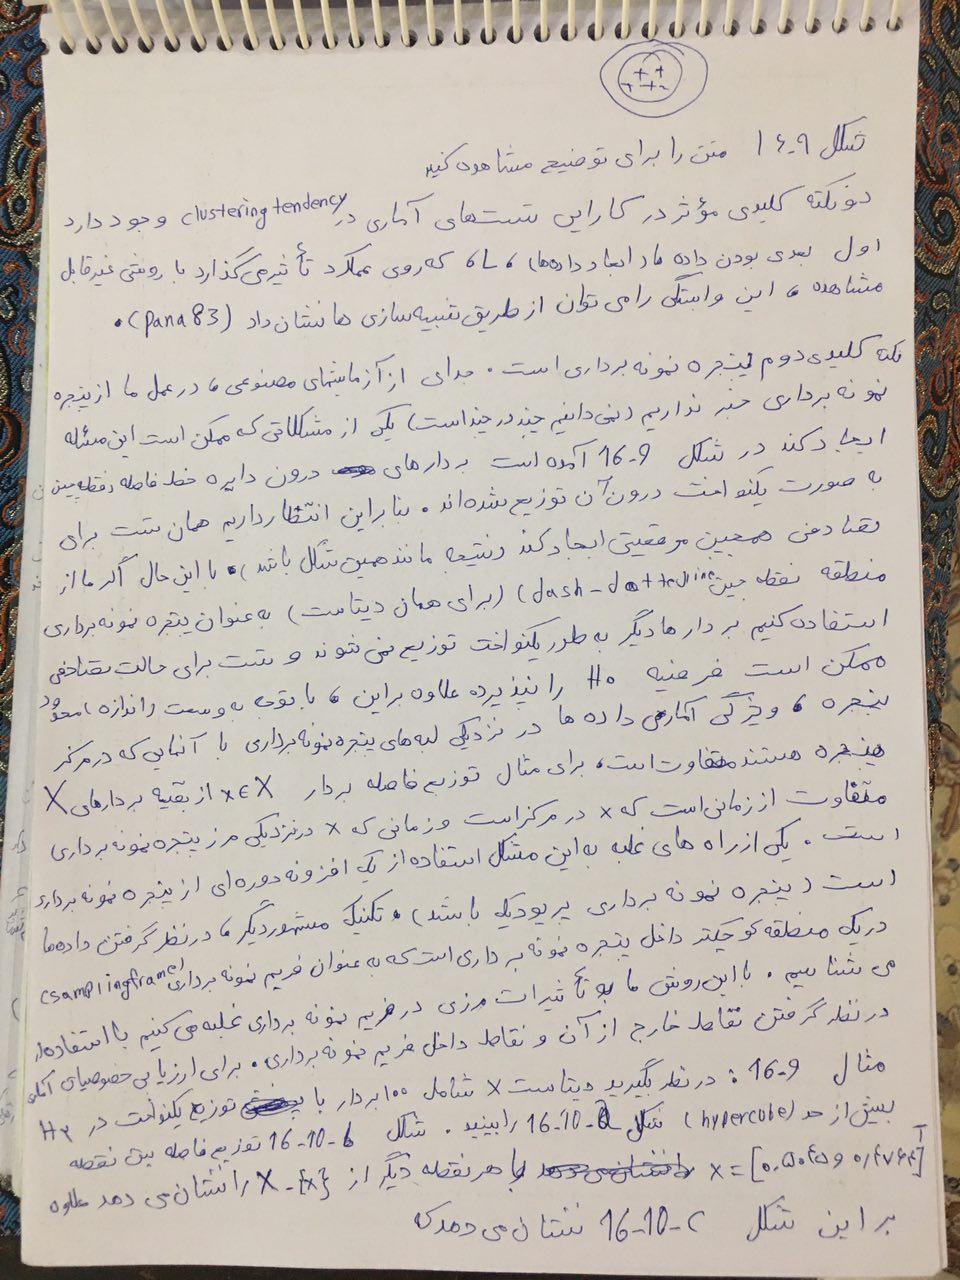 شکل 16.9 متن را برای توضیح مشاهده کنید
دو نکته کلیدی مؤثر در کارایی تست‌های آماری در clustering tendency وجود دارد
اول بعدی بودن داده ها (ابعاد داده‌ها) ، L ، که روی عملکرد تأثیر می‌گذارد با روشی غیر قابل
مشاهده ، این وابستگی را می توان از طریق شبیه سازی ها نشان داد (pana 83) .
نکته کلیدی دوم پنجره نمونه برداری است . جدای از آزمایشهای مصنوعی ، در عمل ما از پنجره
نمونه برداری خبر نداریم (نمی دانیم چند در چند است) یکی از مشکلاتی که ممکن است این مسئله
ایجاد کند در شکل 16.9 آمده است بردارهای درون دایره خط فاصله نقطه چین
به صورت یکنواخت درون آن توزیع شده‌اند . بنابراین انتظار داریم همان تست برای
تصادفی همچین موقعیتی ایجاد کند و نتیجه مانند همین شکل باشد) ، با این حال اگر ما از
منطقه نقطه چین dash-dotted line) (برای همان دیتاست) به عنوان پنجره نمونه برداری
استفاده کنیم بردارها دیگر به طور یکنواخت توزیع نمی شوند و تست برای حالت تصادفی
ممکن است فرضیه H0 را نپذیرد علاوه براین ، با توجه به وسعت (اندازه) محدود
پنجره ، ویژگی آماری داده ها در نزدیکی لبه‌های پنجره نمونه برداری با آنهایی که در مرکز
پنجره هستند متفاوت است، برای مثال توزیع فاصله بردار x∈X از بقیه بردارهای X
متفاوت از زمانی است که x در مرکز است و زمانی که x در نزدیکی مرز پنجره نمونه برداری
است . یکی از راه های غلبه به این مشکل استفاده از یک افزونه دوره‌ای از پنجره نمونه برداری
است (پنجره نمونه برداری پریودیک باشد) ، تکنیک مشهور دیگر ، در نظر گرفتن داده‌ها
در یک منطقه کوچکتر داخل پنجره نمونه برداری است که به عنوان فریم نمونه برداری (sampling frame)
می شناسیم . با این روش ما به تأثیرات مرزی در فریم نمونه برداری غلبه می کنیم با استفاده از
در نظر گرفتن نقاط خارج از آن و نقاط داخل فریم نمونه برداری . برای ارزیابی خصوصیات آماری
مثال 16-9 : در نظر بگیرید دیتاست X شامل 100 بردار با توزیع یکنواخت در H2
بیش از حد (hypercube) شکل 16-10-a را ببینید . شکل 16-10-b توزیع فاصله بین نقطه
x = با هر نقطه دیگر از X-{x} را نشان می دهد علاوه
بر این شکل 16-10-c نشان می دهد که